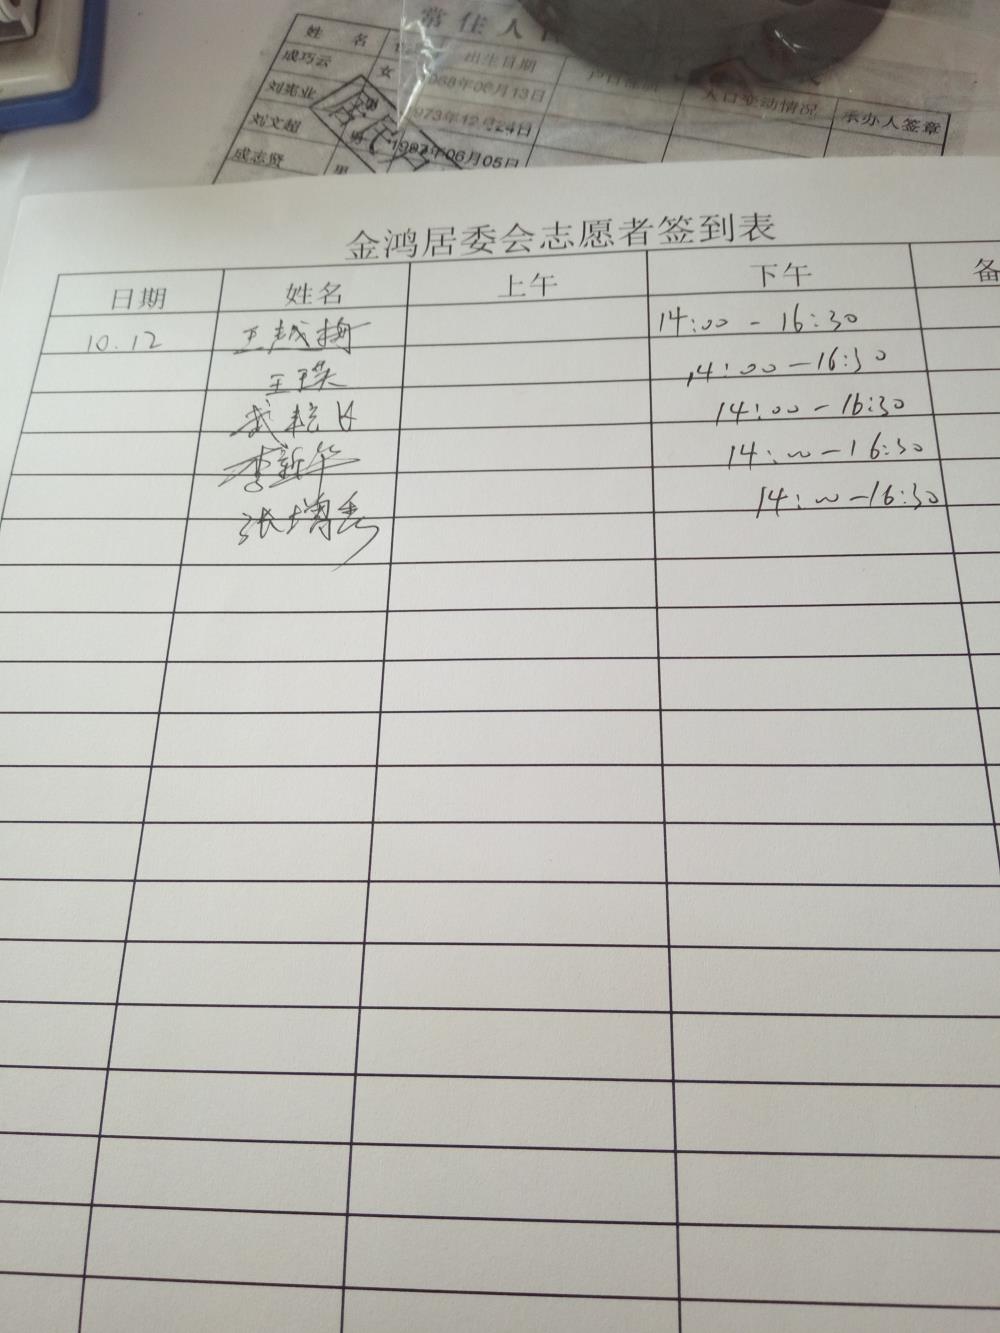 常住人
姓名 出生日期 人口变动情况 承办人签章
成巧云 女 1968年06月13日
刘宪业 1973年12月24日
刘文超 男 06月05日
成志贤 男
金鸿居委会志愿者签到表
日期 姓名 上午 下午 备
10.12 王越梅 14:00-16:30
14:00-16:30
14:00-16:30
李新华 14:00-16:30
张增秀 14:00-16:30